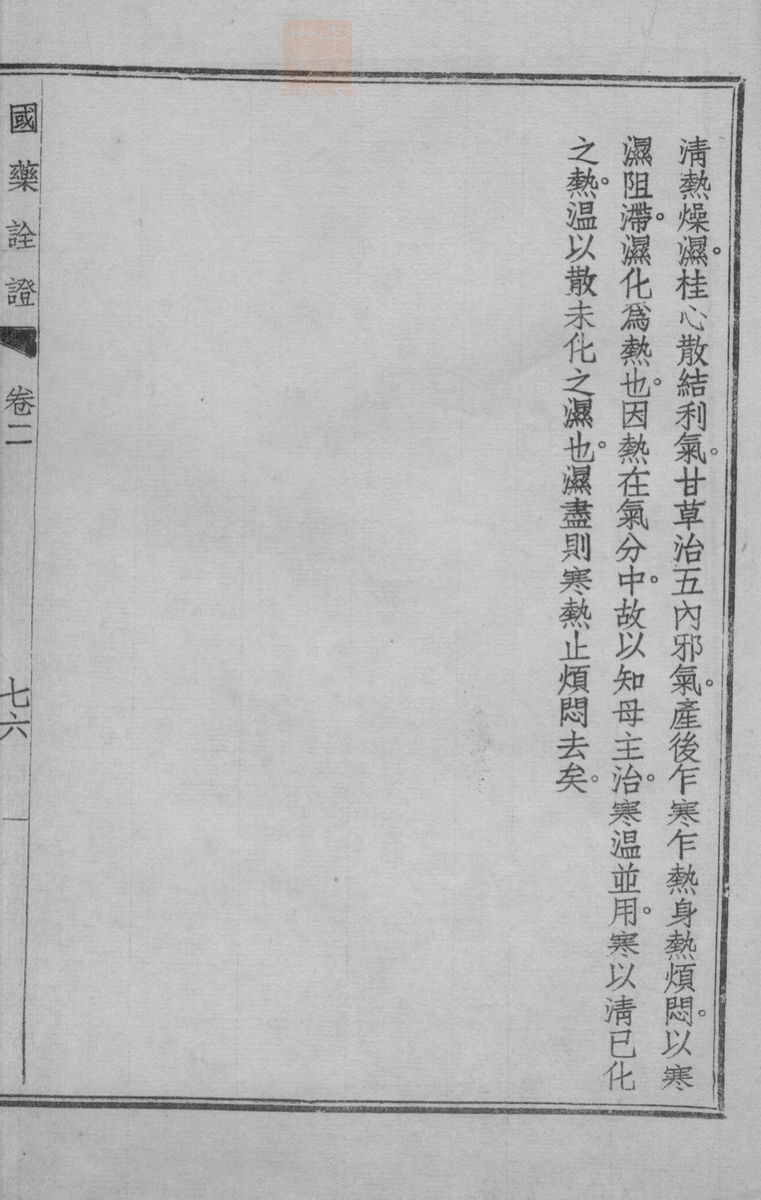 清熱燥濕。桂心散結利氣。甘草治五內邪氣。產後乍寒乍熱身熱煩悶。以寒
濕阻滯。濕化爲熱也。因熱在氣分中。故以知母主治。寒温並用。寒以清已化
之熱。温以散未化之濕也。濕盡則寒熱止煩悶去矣。
國藥詮證 卷二 七六